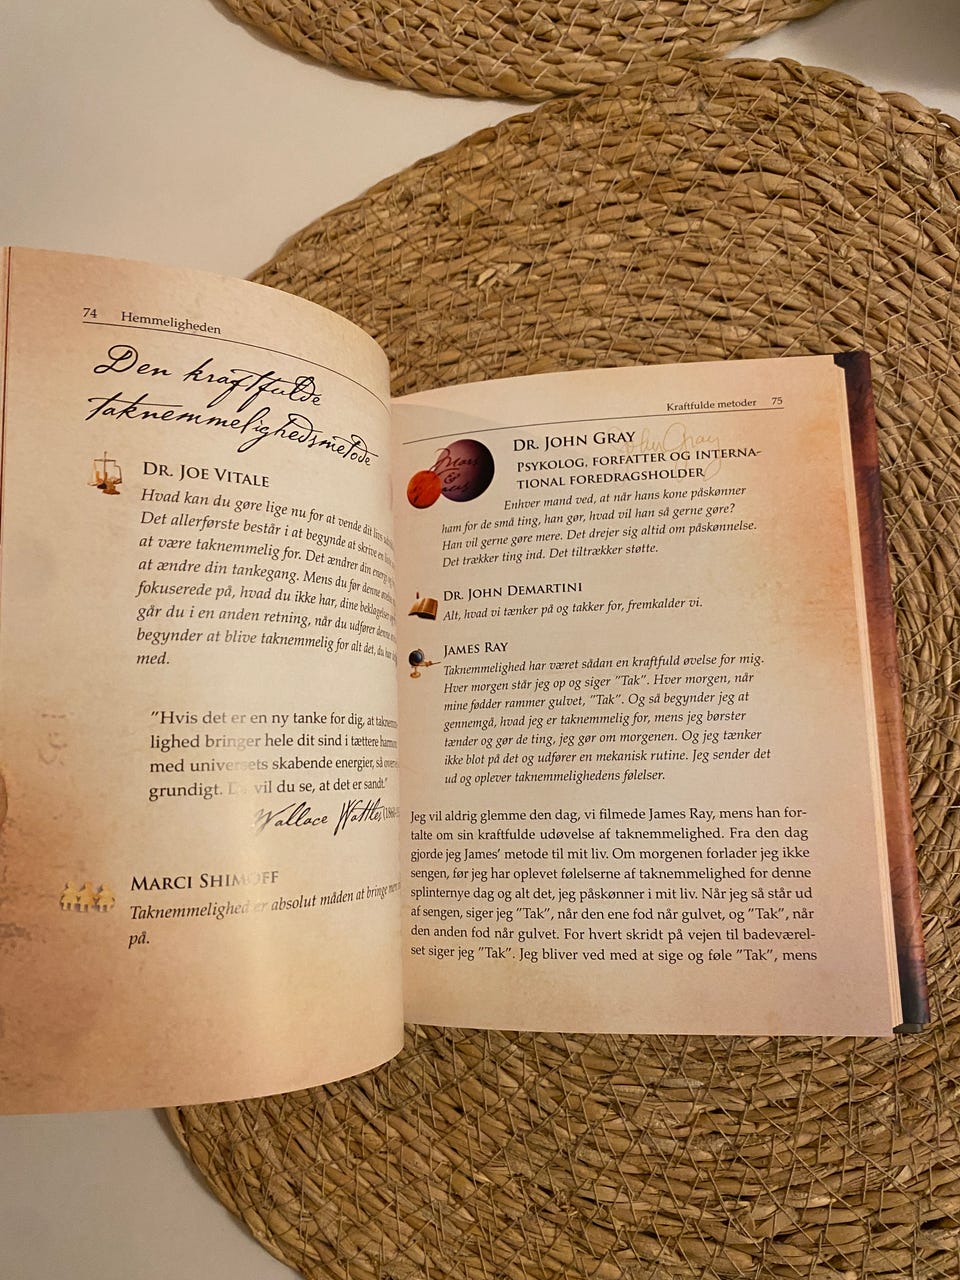 74 Hemmeligheden
Den kraftfulde
taknemmelighedsmetode
DR. JOE VITALE
Hvad kan du gøre lige nu for at vende dit livs
Det allerførste består i at begynde at skrive en
at være taknemmelig for. Det ændrer din energi
at ændre din tankegang. Mens du før denne
fokuserede på, hvad du ikke har, dine beklagelser
går du i en anden retning, når du udfører denne
begynder at blive taknemmelig for alt det, du har
med.
"Hvis det er en ny tanke for dig, at taknem-
lighed bringer hele dit sind i tættere harmoni
med universets skabende energier, så
grundigt. Da vil du se, at det er sandt."
Wallace Wattles
MARCI SHIMOFF
Taknemmelighed er absolut måden at bringe mere
på.
Kraftfulde metoder 75
Mars
&
DR. JOHN GRAY
John Gray
PSYKOLOG, FORFATTER OG INTERNA-
TIONAL FOREDRAGSHOLDER
Enhver mand ved, at når hans kone påskønner
ham for de små ting, han gør, hvad vil han så gerne gøre?
Han vil gerne gøre mere. Det drejer sig altid om påskønnelse.
Det trækker ting ind. Det tiltrækker støtte.
DR. JOHN DEMARTINI
Alt, hvad vi tænker på og takker for, fremkalder vi.
JAMES RAY
Taknemmelighed har været sådan en kraftfuld øvelse for mig.
Hver morgen står jeg op og siger "Tak". Hver morgen, når
mine fødder rammer gulvet, "Tak". Og så begynder jeg at
gennemgå, hvad jeg er taknemmelig for, mens jeg børster
tænder og gør de ting, jeg gør om morgenen. Og jeg tænker
ikke blot på det og udfører en mekanisk rutine. Jeg sender det
ud og oplever taknemmelighedens følelser.
Jeg vil aldrig glemme den dag, vi filmede James Ray, mens han for-
talte om sin kraftfulde udøvelse af taknemmelighed. Fra den dag
gjorde jeg James' metode til mit liv. Om morgenen forlader jeg ikke
sengen, før jeg har oplevet følelserne af taknemmelighed for denne
splinternye dag og alt det, jeg påskønner i mit liv. Når jeg så står ud
af sengen, siger jeg "Tak", når den ene fod når gulvet, og "Tak", når
den anden fod når gulvet. For hvert skridt på vejen til badeværel-
set siger jeg "Tak". Jeg bliver ved med at sige og føle "Tak", mens